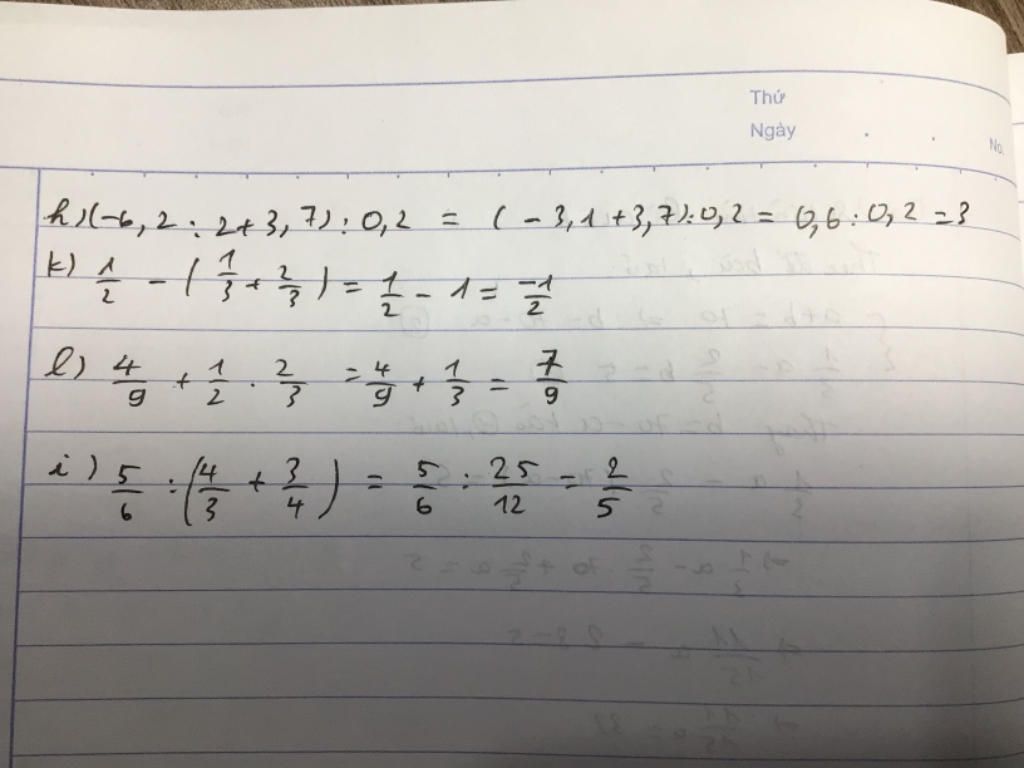 Thứ
Ngày . .
No.
h) (-6,2 : 2 + 3,7) : 0,2 = (-3,1 + 3,7) : 0,2 = 0,6 : 0,2 = 3
k) 1/2 - (1/3 + 2/3) = 1/2 - 1 = -1/2
l) 4/9 + 1/2 . 2/3 = 4/9 + 1/3 = 7/9
i) 5/6 : (4/3 + 3/4) = 5/6 : 25/12 = 2/5